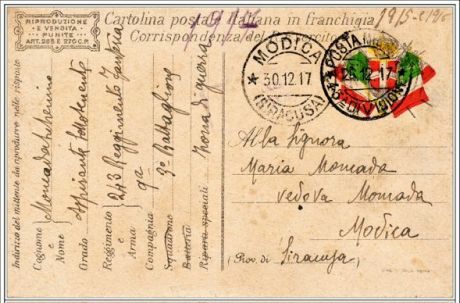 RIPRODUZIONE
E VENDITA
PUNITE
ART. 285 E 276 C.P.
Cartolina postale italiana in franchigia
Corrispondenza del R. Esercito
1915
MODICA
30.12.17
(SIRACUSA)
POSTA
26.12.17
DIVISIONE
Indirizzo del mittente da riprodurre nelle risposte
Cognome e Nome Moncada
Grado Aspirante
Reggimento e Arma 243 Reggimento Fanteria
Compagnia 9a
Squadrone 3o Battaglione
Batteria
Riparti speciali Zona di guerra
Alla Signora
Maria Moncada
vedova Moncada
Modica
(Prov. di Siracusa